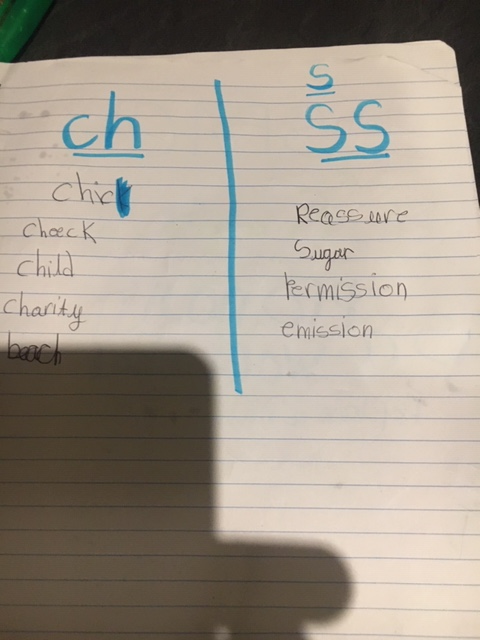 ch
chic
check
child
charity
beach
s
ss
Reassure
Sugar
Permission
emission